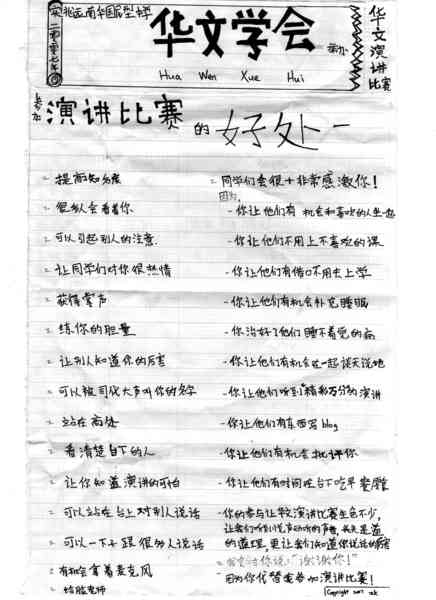 二零零七年
华文学会
Hua Wen Xue Hui
华文演讲比赛
参加
演讲比赛的好处一
= 提高知名度
= 很多人会看着你
= 可以引起别人的注意.
= 让同学们对你很热情
= 获得掌声
= 练你的胆量
= 让别人知道你的厉害
= 可以被司仪大声叫你的名字
= 站在高处
= 看清楚台下的人
= 让你知道演讲的可怕
= 可以站在台上对别人说话
= 可以一下子跟很多人说话
= 有机会拿着麦克风
= 结脸老师
= 同学们会很+非常感激你!
因为,
- 你让他们有机会和喜欢的人坐一起
- 你让他们不用上不喜欢的课
- 你让他们有借口不用去上学
- 你让他们有机会补充睡眠
- 你治好了他们睡不着觉的病
- 你让他们有机会在一起谈天说地
- 你让他们听到了精彩万分的演讲
- 你让他们有东西写blog
- 你让他们有机会批评你
- 你让他们有时间在台下吃早餐
- 你的参与让华文演讲比赛生色不少,
让我们听到
的道理,更让我们知道你说话的厉害
= 我会对你说:"谢谢你!"
因为你代替我参加演讲比赛!
Copyright 2007